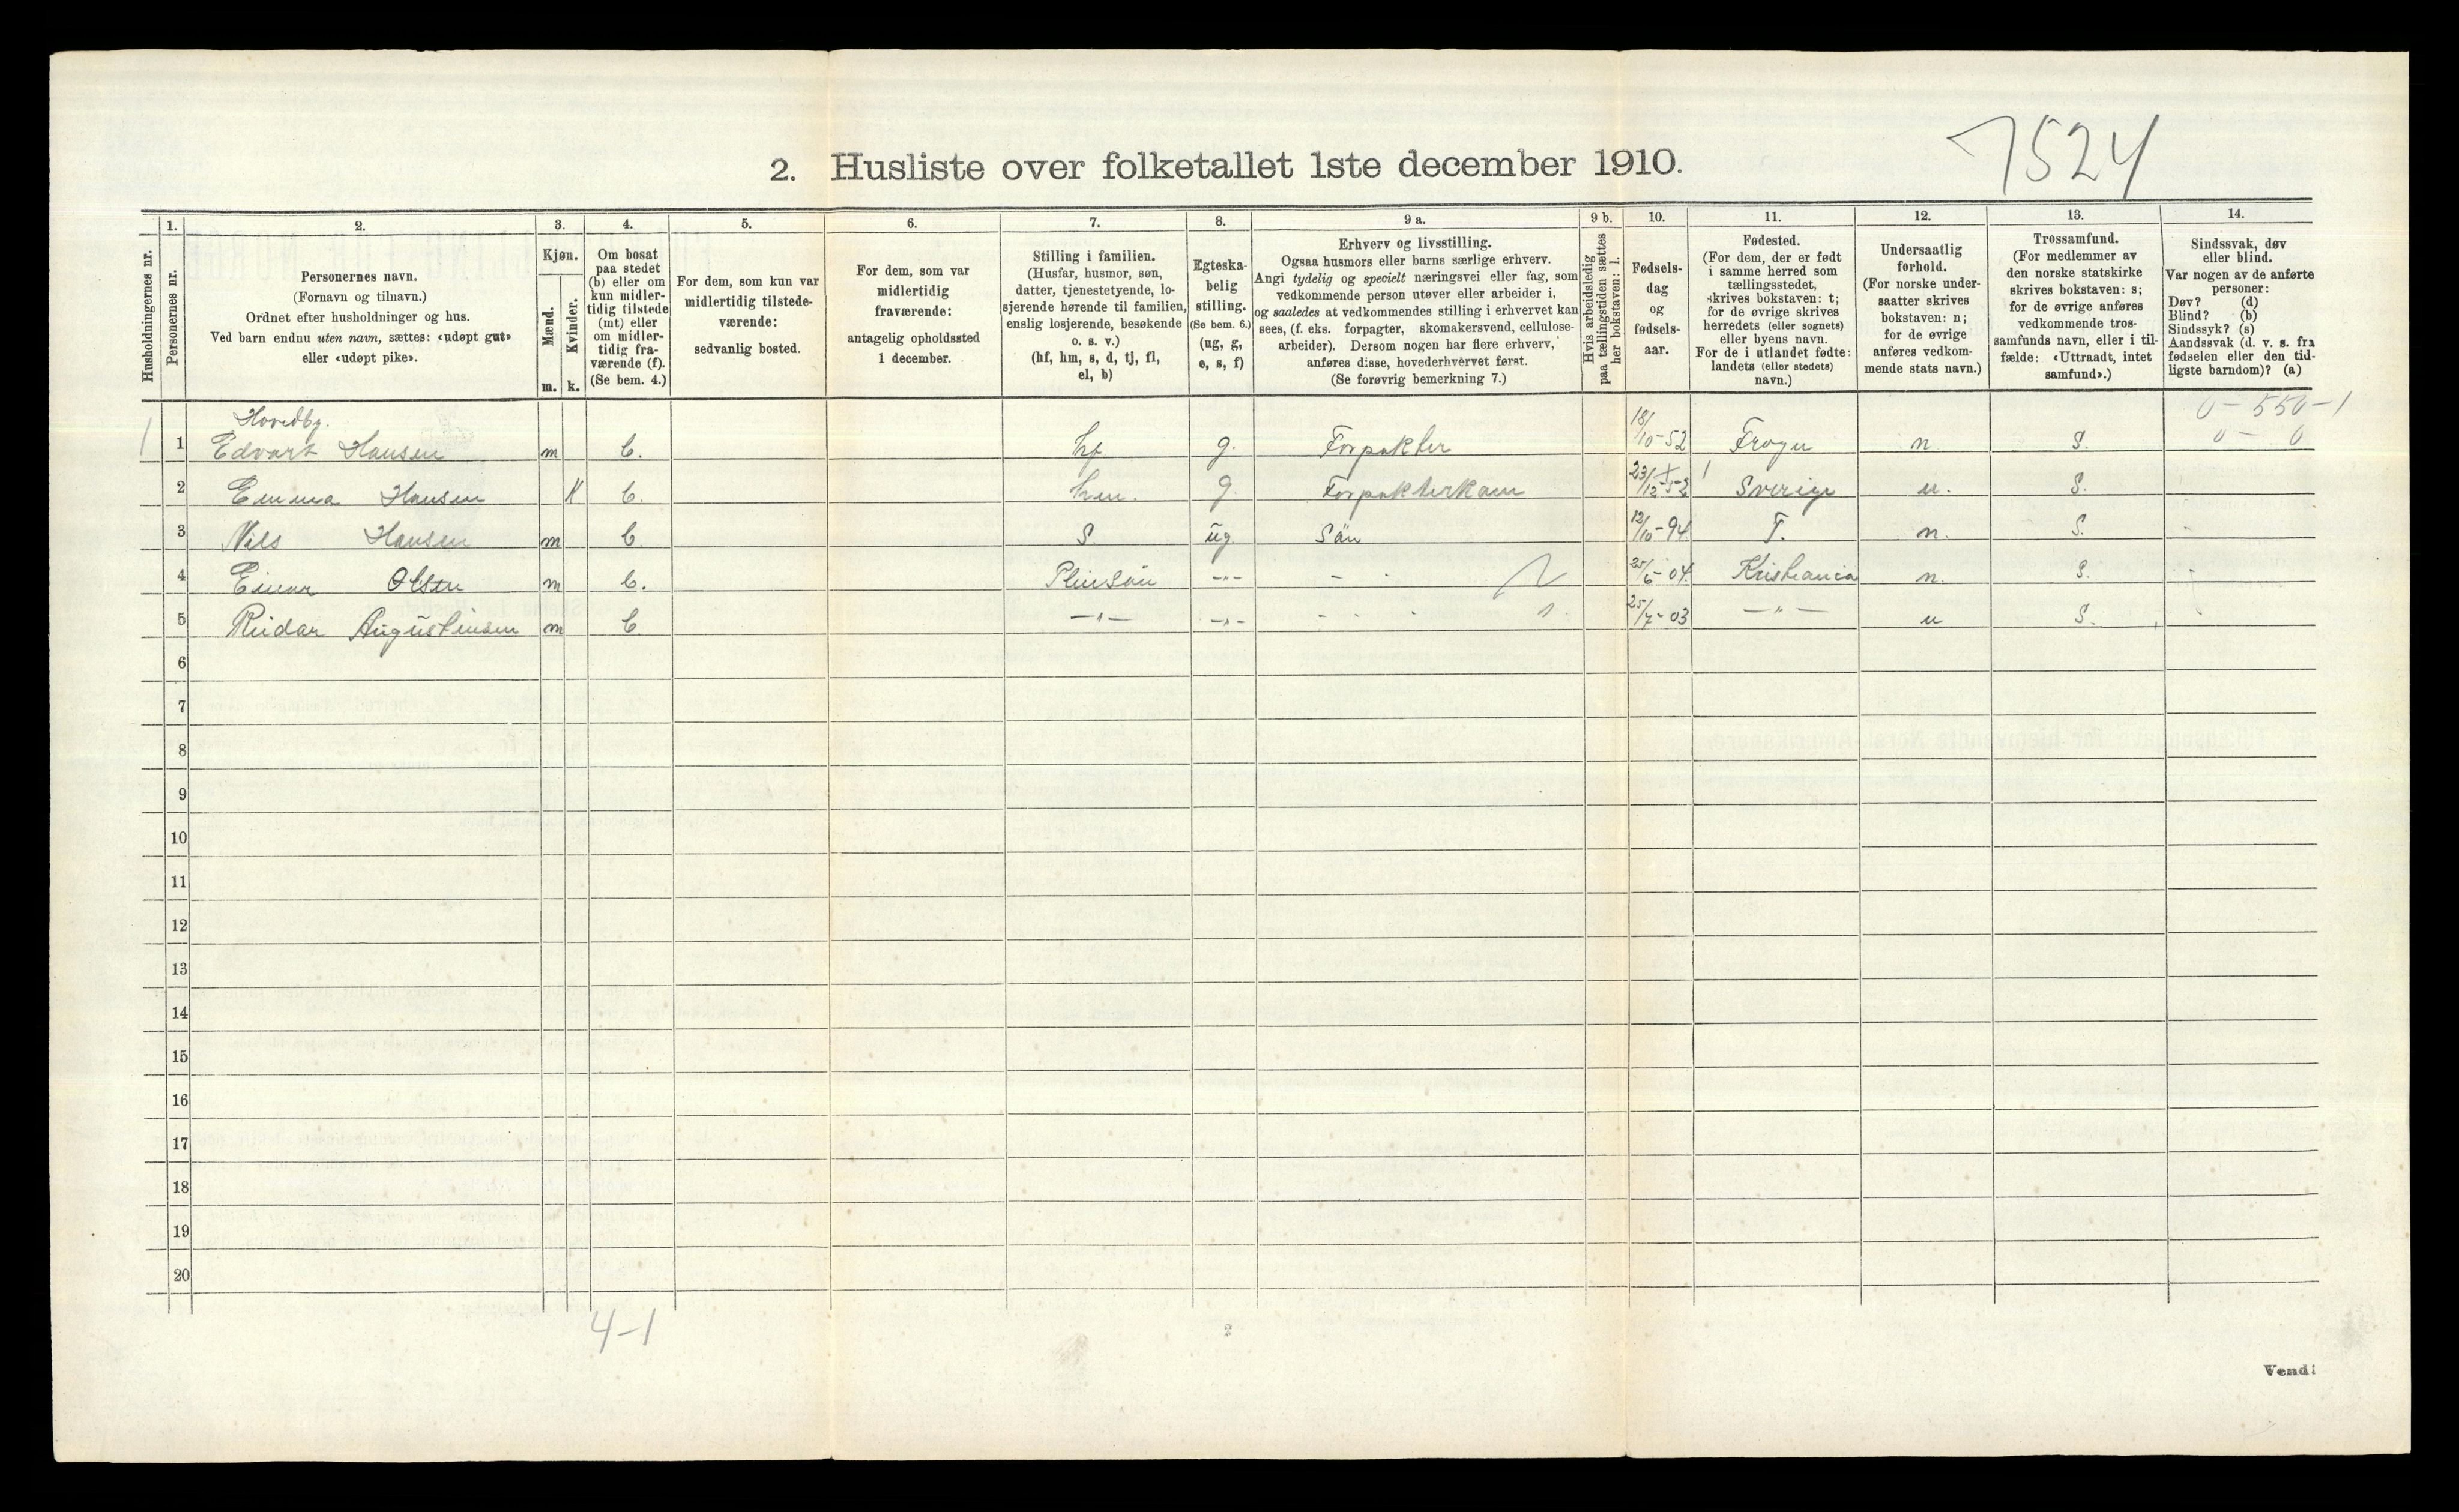 7524
2. Husliste over folketallet 1ste december 1910.
Husholdningernes nr.
1.
Personernes nr.
2.
Personernes navn.
(Fornavn og tilnavn.)
Ordnet efter husholdninger og hus.
Ved barn endnu uten navn, sættes: «udøpt gut»
eller «udøpt pike».
3.
Kjøn.
Mænd.
m.
Kvinder.
k.
4.
Om bosat
paa stedet
(b) eller om
kun midler-
tidig tilstede
(mt) eller
om midler-
tidig fra-
værende (f).
(Se bem. 4.)
5.
For dem, som kun var
midlertidig tilstede-
værende:
sedvanlig bosted.
6.
For dem, som var
midlertidig
fraværende:
antagelig opholdssted
1 december.
7.
Stilling i familien.
(Husfar, husmor, søn,
datter, tjenestetyende, lo-
sjerende hørende til familien,
enslig losjerende, besøkende
o. s. v.)
(hf, hm, s, d, tj, fl,
el, b)
8.
Egteska-
belig
stilling.
(Se bem. 6.)
(ug, g,
e, s, f)
9 a.
Erhverv og livsstilling.
Ogsaa husmors eller barns særlige erhverv.
Angi tydelig og specielt næringsvei eller fag, som
vedkommende person utøver eller arbeider i,
og saaledes at vedkommendes stilling i erhvervet kan
sees, (f. eks. forpagter, skomakersvend, cellulose-
arbeider). Dersom nogen har flere erhverv,
anføres disse, hovederhvervet først.
(Se forøvrig bemerkning 7.)
9 b.
Hvis arbeidsledig
paa tællingstiden sættes
her bokstaven: l.
10.
Fødsels-
dag
og
fødsels-
aar.
11.
Fødested.
(For dem, der er født
i samme herred som
tællingsstedet,
skrives bokstaven: t;
for de øvrige skrives
herredets (eller sognets)
eller byens navn.
For de i utlandet fødte:
landets (eller stedets)
navn.)
12.
Undersaatlig
forhold.
(For norske under-
saatter skrives
bokstaven: n;
for de øvrige
anføres vedkom-
mende stats navn.)
13.
Trossamfund.
(For medlemmer av
den norske statskirke
skrives bokstaven: s;
for de øvrige anføres
vedkommende tros-
samfunds navn, eller i til-
fælde: «Uttraadt, intet
samfund».)
14.
Sindssvak, døv
eller blind.
Var nogen av de anførte
personer:
Døv? (d)
Blind? (b)
Sindssyk? (s)
Aandssvak (d. v. s. fra
fødselen eller den tid-
ligste barndom)? (a)
0-550-1
0- 0
Hovedby.
1 1 Edvart Hansen m b. hf g. Forpakter 18/10-52 Frogn n. S.
2 Emma Hansen K b. hm. g. Forpakterkone 23/12-52 Sverige n. S.
3 Nils Hansen m b. S. ug. Sön 12/10-94 T. n. S.
4 Einar Olsen m b. Pleiesön -"- - - 25/6-04 Kristiania n. S.
5 Reidar Augustinsen m b -"- -"- - - 25/7-03 -"- n S.
6
7
8
9
10
11
12
13
14
15
16
17
18
19
20
4-1
2
Vend!